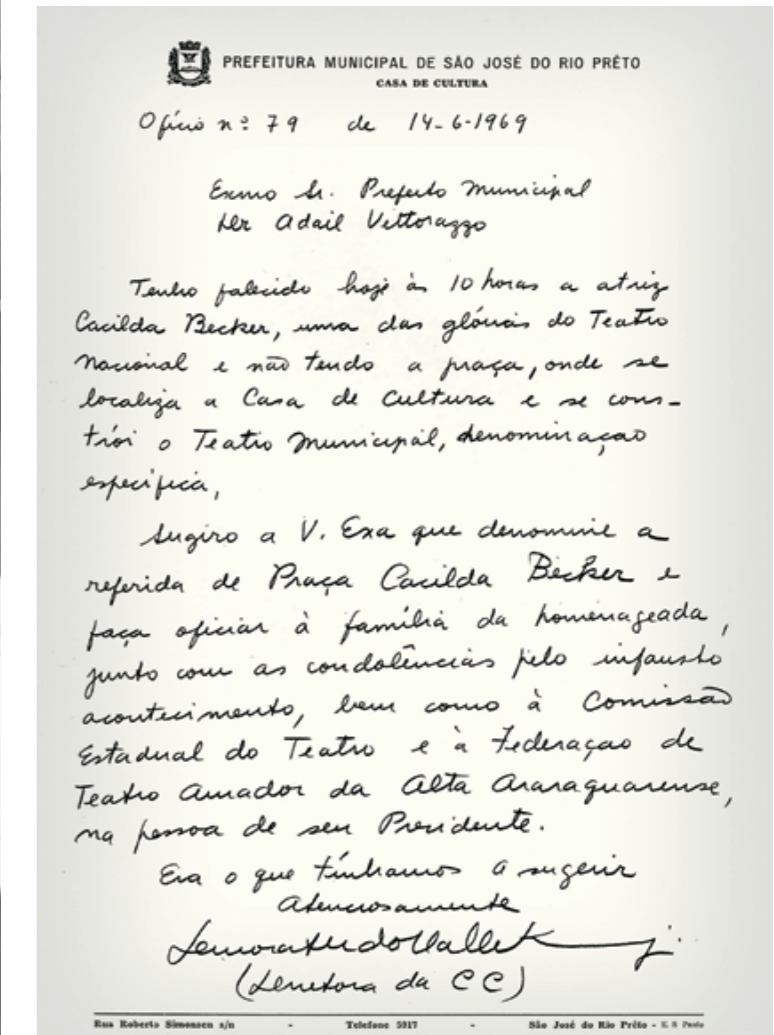 PREFEITURA MUNICIPAL DE SÃO JOSÉ DO RIO PRÊTO
CASA DE CULTURA
Ofício nº 79 de 14-6-1969
Exmo Sr. Prefeito Municipal
Dr Adail Vettorazzo
Tenho falecido hoje às 10 horas a atriz
Cacilda Becker, uma das glórias do Teatro
Nacional e não tendo a praça, onde se
localiza a Casa de Cultura e se cons-
trói o Teatro Municipal, denominação
específica,
Sugiro a V. Exa que denomine a
referida de Praça Cacilda Becker e
faça oficiar à família da homenageada,
junto com as condolências pelo infausto
acontecimento, bem como à Comissão
Estadual do Teatro e à Federação de
Teatro Amador da Alta Araraquarense,
na pessoa de seu Presidente.
Era o que tínhamos a sugerir
Atenciosamente
(Diretora da CC)
Rua Roberto Simonsen s/n - Telefone 5917 - São José do Rio Prêto - E. S Paulo